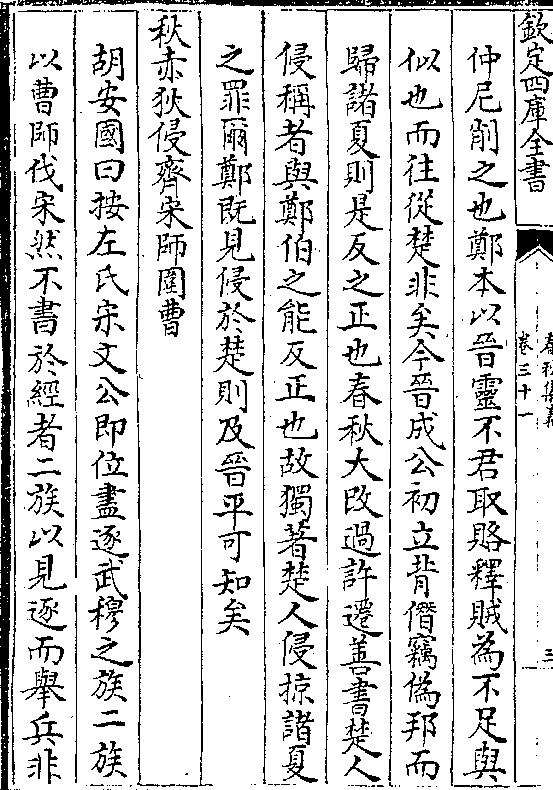 欽定四庫全書
春秋集義
卷三十一
三
仲尼削之也鄭本以晉靈不君取賂釋賊為不足與
似也而往從楚非矣今晉成公初立背僭竊偽邦而
歸諸夏則是反之正也春秋大改過許遷善書楚人
侵稱者與鄭伯之能反正也故獨著楚人侵掠諸夏
之罪爾鄭既見侵於楚則及晉平可知矣
秋赤狄侵齊宋師圍曹
胡安國曰按左氏宋文公即位盡逐武穆之族二族
以曹師伐宋然不書於經者二族以見逐而舉兵非